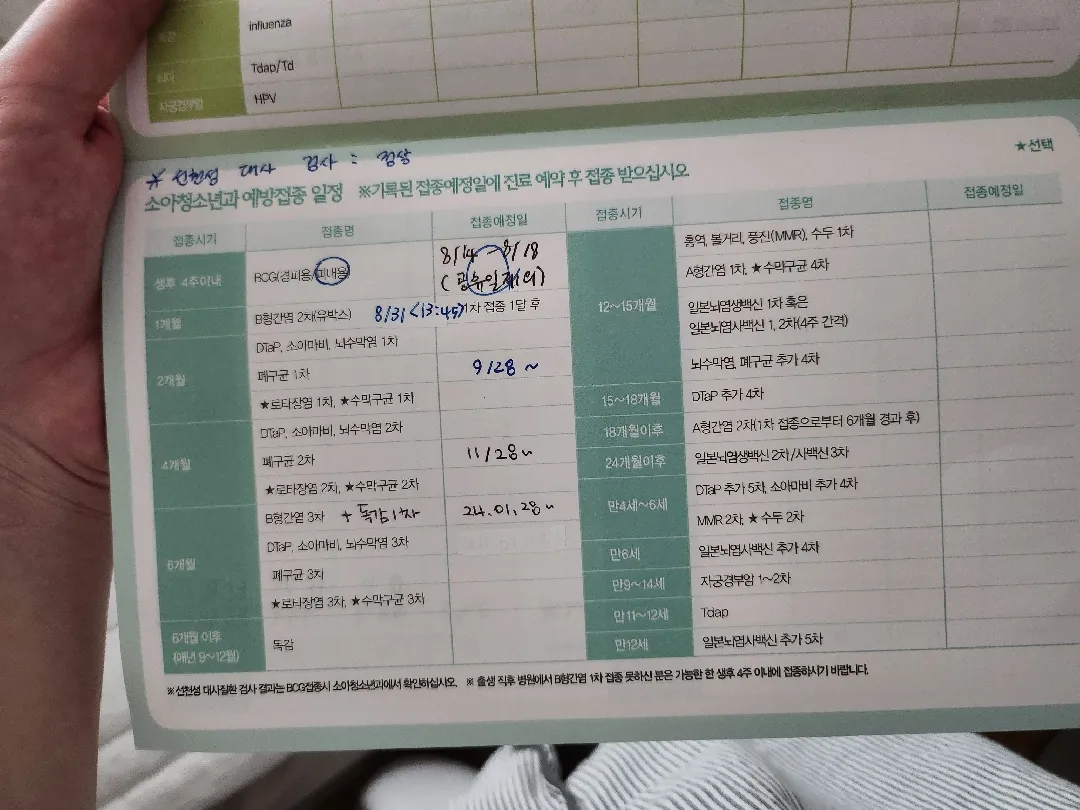 독감
influenza
Tdap/Td
자궁경부암
HPV
* 선천성 대사 검사 : 정상
소아청소년과 예방접종 일정 ※기록된 접종예정일에 진료 예약 후 접종 받으십시오
★선택
접종시기 접종명 접종예정일
생후 4주이내 BCG(경피용/피내용) 8/14 ~ 8/18
(공휴일제외)
1개월 B형간염 2차(유박스) 8/31 <13:45> 1차 접종 1달 후
2개월
DTaP, 소아마비, 뇌수막염 1차
폐구균 1차 9/28 ~
★로타장염 1차, ★수막구균 1차
4개월
DTaP, 소아마비, 뇌수막염 2차
폐구균 2차 11/28~
★로타장염 2차, ★수막구균 2차
6개월
B형간염 3차 + 독감1차 24.01.28~
DTaP, 소아마비, 뇌수막염 3차
폐구균 3차
★로타장염 3차, ★수막구균 3차
6개월 이후
(매년 9~12월)
독감
접종시기 접종명 접종예정일
12~15개월
홍역, 볼거리, 풍진(MMR), 수두 1차
A형간염 1차, ★수막구균 4차
일본뇌염생백신 1차 혹은
일본뇌염사백신 1, 2차(4주 간격)
뇌수막염, 폐구균 추가 4차
15~18개월 DTaP 추가 4차
18개월이후 A형간염 2차(1차 접종으로부터 6개월 경과 후)
24개월이후 일본뇌염생백신 2차/사백신 3차
만4세~6세
DTaP 추가 5차, 소아마비 추가 4차
MMR 2차, ★수두 2차
만6세 일본뇌염사백신 추가 4차
만9~14세 자궁경부암 1~2차
만11~12세 Tdap
만12세 일본뇌염사백신 추가 5차
※ 선천성 대사질환 검사 결과는 BCG접종시 소아청소년과에서 확인하십시오. ※ 출생 직후 병원에서 B형간염 1차 접종 못하신 분은 가능한 한 생후 4주 이내에 접종하시기 바랍니다.